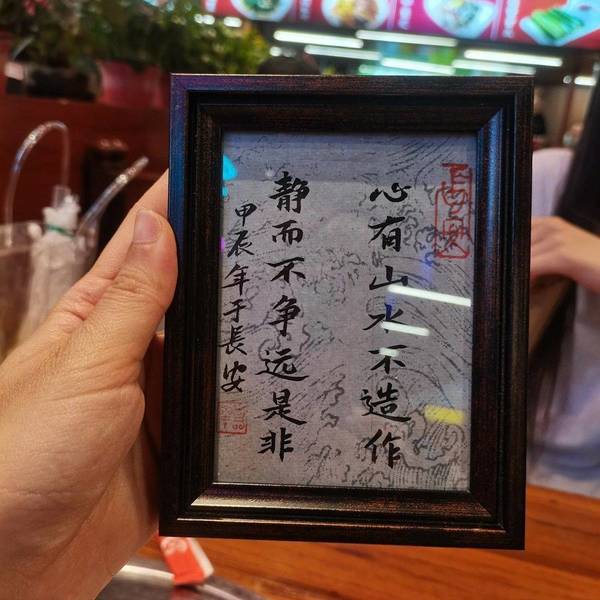 心有山水不造作
静而不争远是非
甲辰年于長安